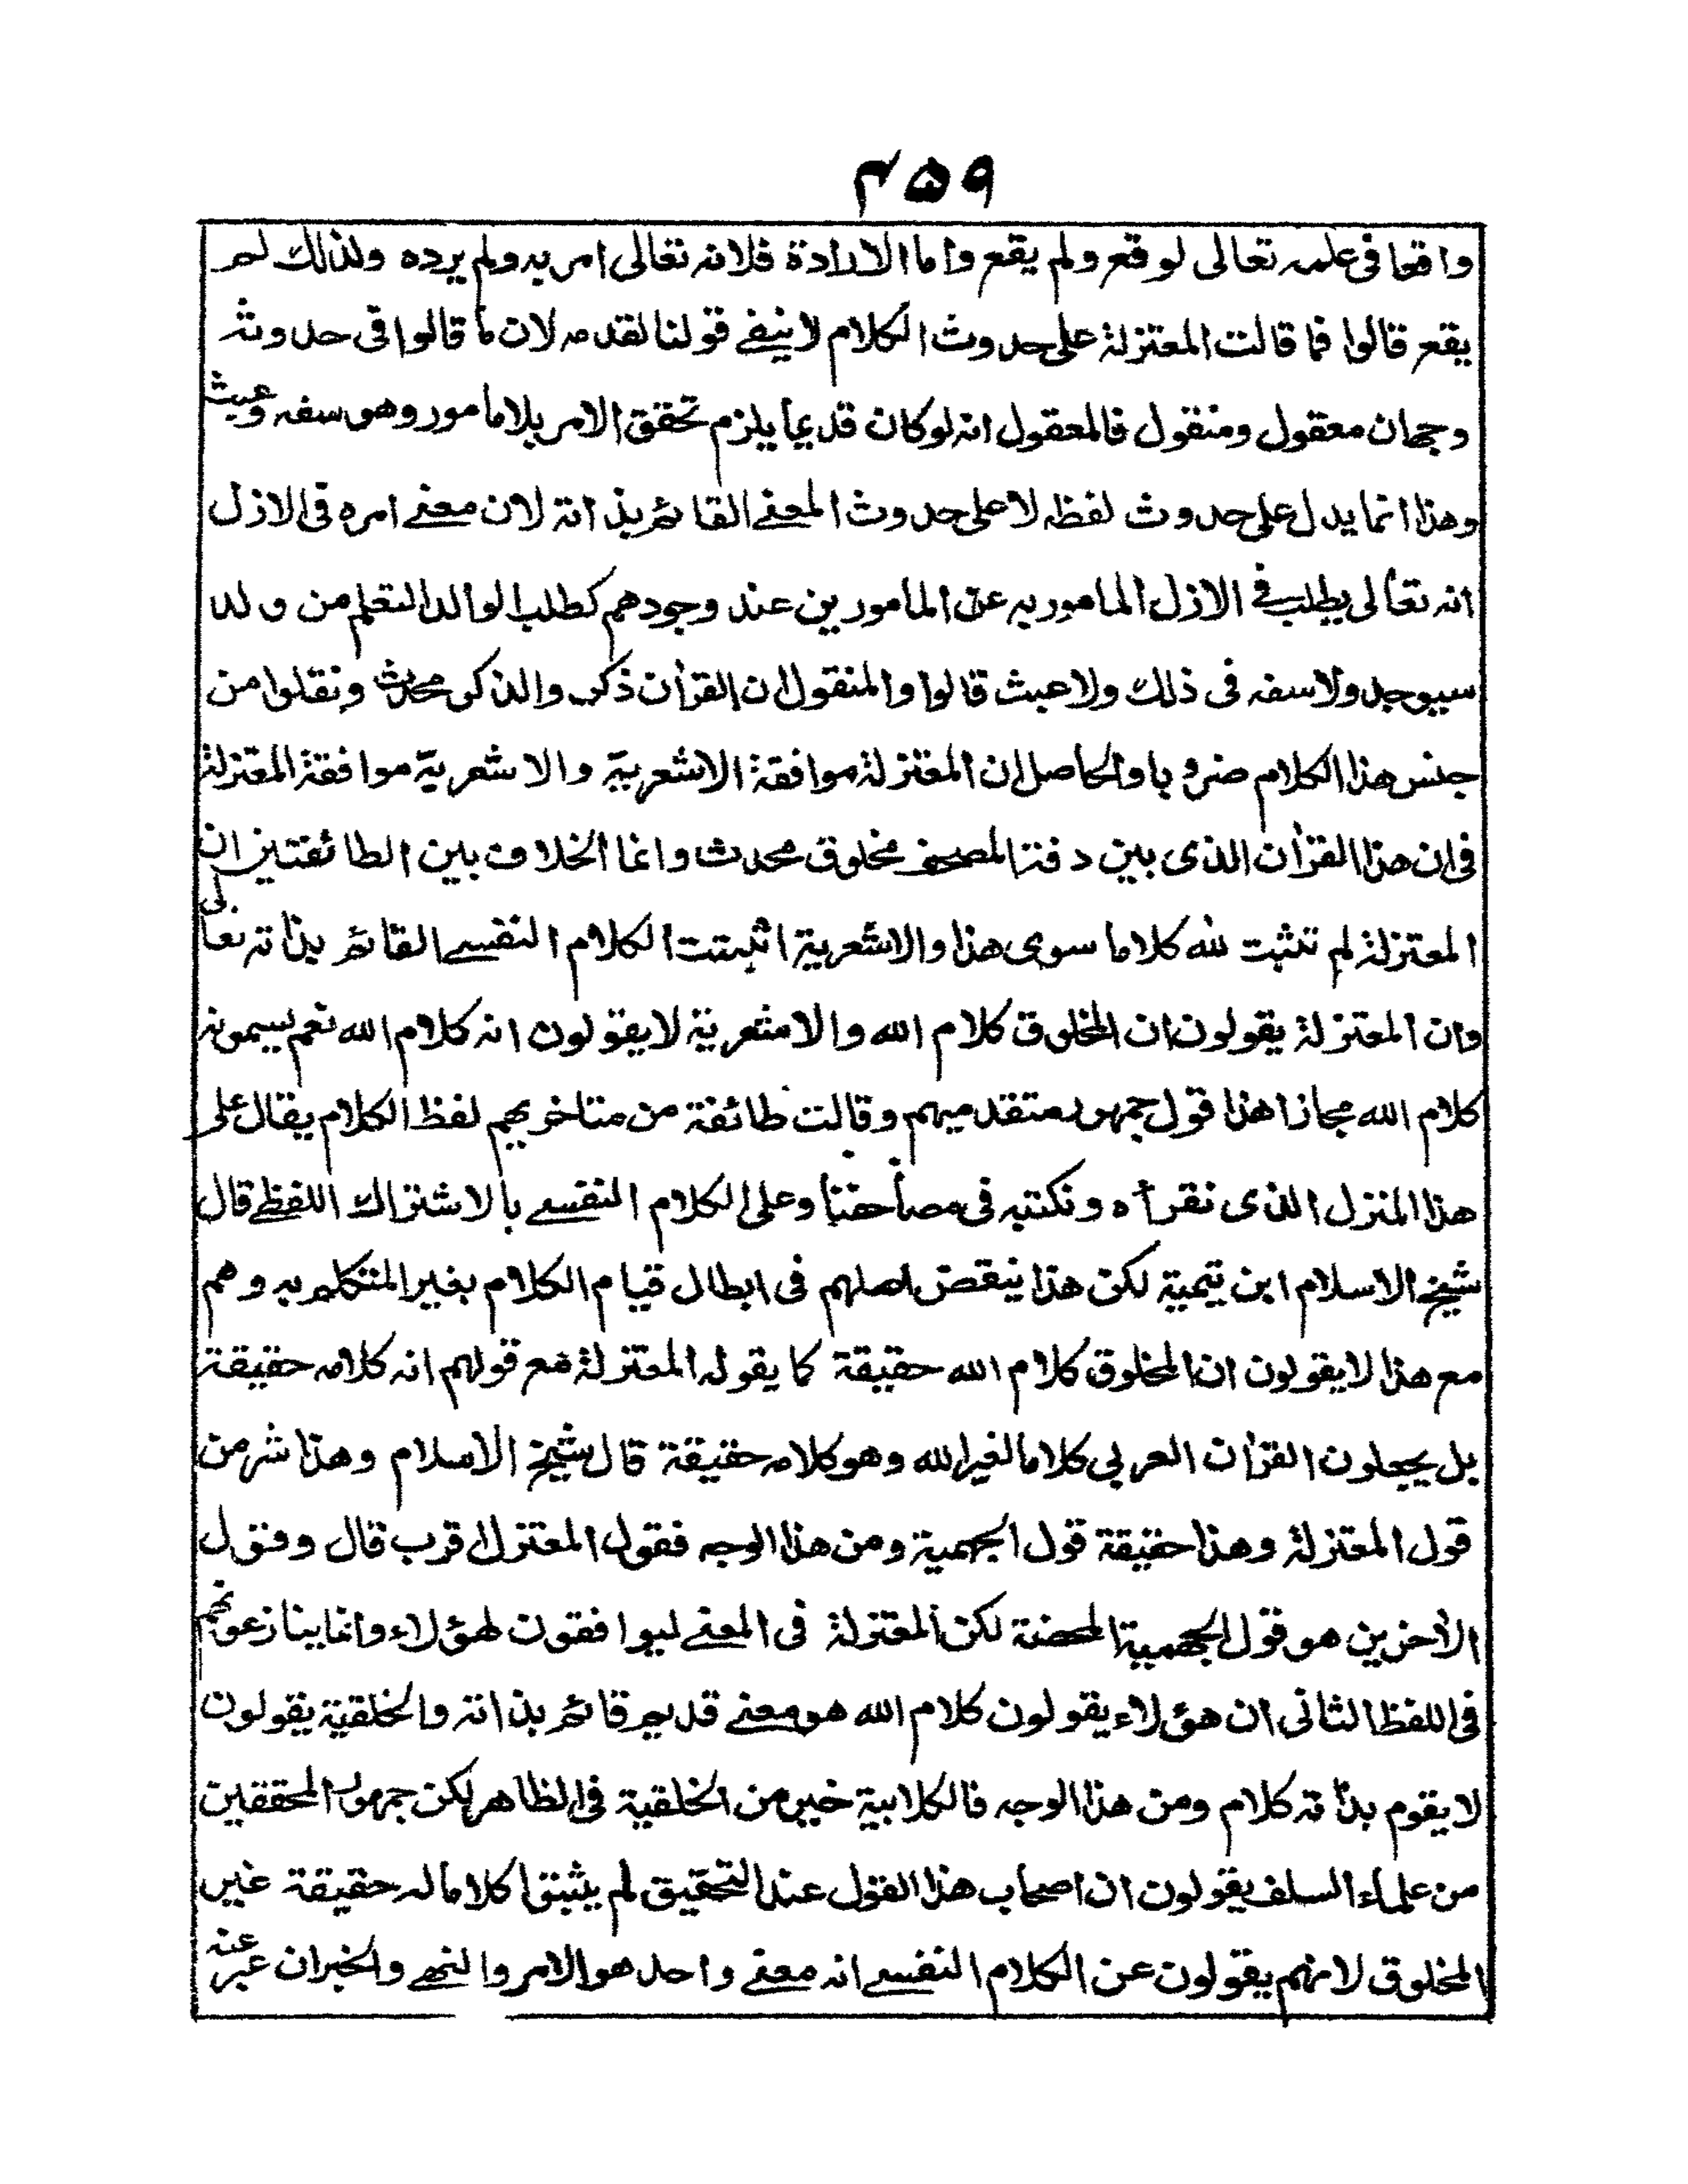 ۴۵۹
واقعا فى علمه تعالى لو وقع ولم يقع واما الارادة فلانه تعالى امر به ولم يرده ولذلك لم
يقع قالوا فما قالت المعتزلة على حدوث الكلام لا ينفے قولنا لقدمه لان ما قالوا فى حدوثه
وجهان معقول ومنقول فالمعقول انه لو كان قديما يلزم تحقق الامر بلا مامور وهو سفه وعبث
وهذا انما يدل على حدوث لفظه لا على حدوث المعنے القائم بذاته لان معنے امره فى الازل
انه تعالى يطلب فے الازل المامور به عن المامورين عند وجودهم كطلب الوالد التعلم من ولد
سيوجد ولا سفه فى ذلك ولا عبث قالوا والمنقول ان القرأن ذكر والذكر محدث ونقلوا من
جنس هذا الكلام ضروبا والحاصل ان المعتزلة موافقة الاشعرية والاشعرية موافقة المعتزلة
فى ان هذا القرأن الذى بين دفتا المصحف مخلوق محدث وانما الخلاف بين الطائفتين ان
المعتزلة لم تثبت لله كلاما سوى هذا والاشعرية اثبتت الكلام النفسے القائم بذاته تعالى
وان المعتزلة يقولون ان المخلوق كلام الله والاشعرية لا يقولون انه كلام الله نعم يسمونه
كلام الله مجازا هذا قول جمهور متقدميهم وقالت طائفة من متاخريهم لفظ الكلام يقال على
هذا المنزل الذى نقرأه ونكتبه فى مصاحفنا وعلى الكلام النفسے بالاشتراك اللفظے قال
شيخ الاسلام ابن تيمية لكن هذا ينقض اصلهم فى ابطال قيام الكلام بغير المتكلم به وهم
مع هذا لا يقولون ان المخلوق كلام الله حقيقة كما يقوله المعتزلة مع قولهم انه كلامه حقيقة
بل يجعلون القرأن العربى كلاما لغير الله وهو كلامه حقيقة قال شيخ الاسلام وهذا شر من
قول المعتزلة وهذا حقيقة قول الجهمية ومن هذا الوجه فقول المعتزل اقرب قال وقول
الأخرين هو قول الجهمية المحضة لكن المعتزلة فى المعنے ليوافقون لهؤلاء وانما ينازعونهم
فى اللفظ الثانى ان هؤلاء يقولون كلام الله هو معنے قديم قائم بذاته والخلقية يقولون
لا يقوم بذاته كلام ومن هذا الوجه فالكلابية خير من الخلقية فى الظاهر لكن جمهور المحققين
من علماء السلف يقولون ان اصحاب هذا القول عند التحقيق لم يثبتوا كلاما له حقيقة غير
المخلوق لانهم يقولون عن الكلام النفسے انه معنے واحد هو الامر والنهے والخبر ان عبر عنه